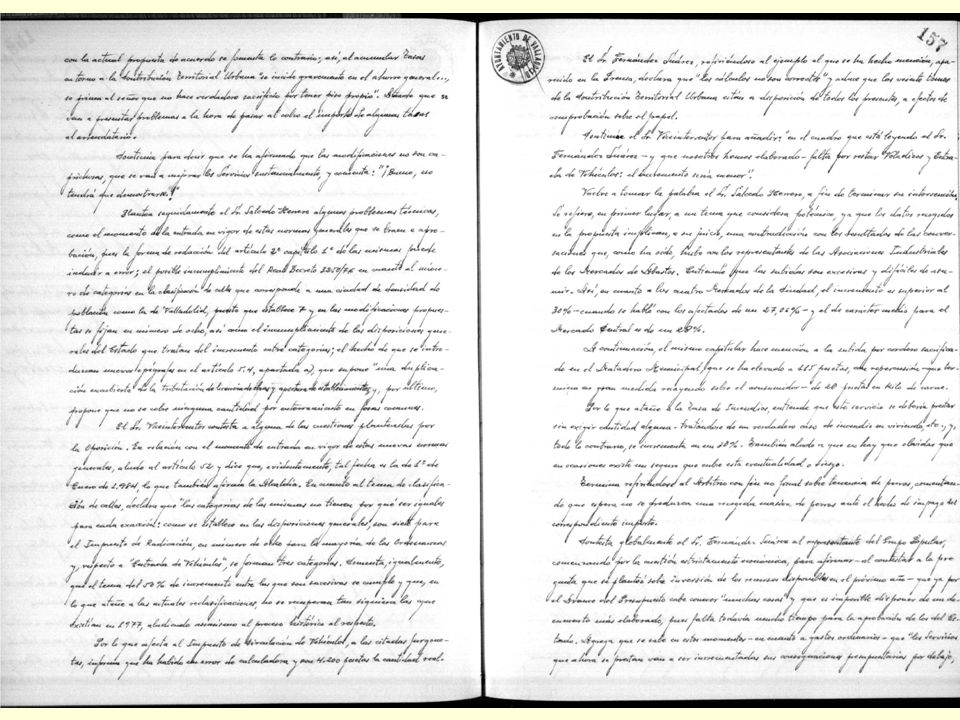 con la actual propuesta de acuerdo se fomenta lo contrario, así, al acumular Tasas
en torno a la Contribución Territorial Urbana "se incide gravemente en el ahorro general...,
se priman al señor que no hace verdadero sacrificio por tener piso propio". Añade que se
van a presentar problemas a la hora de pasar al cobro el importe de algunas tasas
al arrendatario.
Continúa para decir que se ha afirmado que las modificaciones no son ca-
prichosas, que se van a mejorar los Servicios sustancialmente, y comenta: "¡Bueno, eso
tendrá que demostrarse!"
Plantea seguidamente el Sr. Salcedo Herrero algunos problemas técnicos,
como el momento de la entrada en vigor de estas normas generales que se traen a apro-
bación, pues la forma de redacción del artículo 2º capítulo 1º de las mismas puede
inducir a error; el posible incumplimiento del Real Decreto en cuanto al núme-
ro de categorías en la clasificación de calles que corresponde a una ciudad de densidad de
población como la de Valladolid, puesto que establece 7 y en las modificaciones propues-
tas se fijan en número de ocho, así como el incumplimiento de las disposiciones gene-
rales del Estado que tratan del incremento entre categorías; el hecho de que se intro-
duzcan nuevos epígrafes en el artículo 5.4, apartado a), que supone "una duplica-
ción encubierta de la tributación de licencia de obras y apertura de establecimientos", y, por último,
propone que no se cobre ninguna cantidad por enterramiento en fosas comunes.
El Sr. Viceinterventor contesta a alguna de las cuestiones planteadas por
la Oposición. En relación con el momento de entrada en vigor de estas nuevas normas
generales, alude al artículo 52 y dice que, evidentemente, tal fecha es la de 1º de
Enero de 1.984, lo que también afirma la Alcaldía. En cuanto al tema de clasifica-
ción de calles, declara que "las categorías de las mismas no tienen por qué ser iguales
para cada exacción: como se establece en las disposiciones generales, son siete para
el Impuesto de Radicación, en número de ocho para la mayoría de las Ordenanzas
y, respecto a "Entrada de Vehículos", se forman tres categorías. Comenta, igualmente,
que el tema del 50% de incremento entre las que son sucesivas se cumple y que, en
lo que atañe a las actuales reclasificaciones, no se recuperan tan siquiera las que
existían en 1977, aludiendo asimismo al proceso histórico al respecto.
Por lo que afecta al Impuesto de Circulación de Vehículos, a las citadas furgone-
tas, informa que ha habido un error de calculadora y son 4.200 pesetas la cantidad real.
AYUNTAMIENTO DE VALLADOLID
157
El Sr. Fernández Suárez, refiriéndose al ejemplo al que se ha hecho mención, apa-
recido en la Prensa, declara que "los cálculos no son correctos" y aduce que los veinte tomos
de la Contribución Territorial Urbana están a disposición de todos los presentes, a efectos de
comprobación sobre el papel.
Continúa el Sr. Viceinterventor para añadir: "en el cuadro que está leyendo el Sr.
Fernández Suárez -y que nosotros hemos elaborado- falta por restar Voladizos y Entra-
da de Vehículos: el incremento sería menor".
Vuelve a tomar la palabra el Sr. Salcedo Herrero, a fin de terminar su intervención.
Se refiere, en primer lugar, a un tema que considera polémico, ya que los datos recogidos
en la propuesta implican, a su juicio, una contradicción con los resultados de las conver-
saciones que, como ha sido, hubo con los representantes de las Asociaciones Industriales
de los Mercados de Abastos. Entiende que las subidas son excesivas y difíciles de asu-
mir. Así, en cuanto a los cuatro Mercados de la Ciudad, el incremento es superior al
30% -cuando se habló con los afectados de un 27,06%- y el de carácter medio para el
Mercado Central es de un 28%.
A continuación, el mismo capitular hace mención a la subida por cordero sacrifica-
do en el Matadero Municipal, que se ha elevado a 225 pesetas, con repercusión -que ter-
mina en gran medida recayendo sobre el consumidor- de 20 pesetas en kilo de carne.
Por lo que atañe a la Tasa de Incendios, entiende que este servicio se debería prestar
sin exigir cantidad alguna -tratándose de un verdadero caso de incendio en vivienda, etc.-, y,
todo lo contrario, se incrementa en un 50%. También alude a que no hay que olvidar que
en ocasiones existe un seguro que cubre esta eventualidad o riesgo.
Termina refiriéndose al Arbitrio con fin no fiscal sobre tenencia de perros, comentan-
do que espera no se produzca una recogida masiva de perros ante el hecho de impago del
correspondiente importe.
Contesta globalmente el Sr. Fernández Suárez al representante del Grupo Popular,
comenzando por la cuestión estrictamente económica, para afirmar -al contestar a la pre-
gunta que se plantea sobre inversión de los recursos disponibles en el próximo año- que ya por
el Avance del Presupuesto cabe conocer "muchas cosas" y que es imposible disponer de un do-
cumento más elaborado, pues falta todavía mucho tiempo para la aprobación de los del Es-
tado. Agrega que se sabe en estos momentos -en cuanto a gastos ordinarios- que "los Servicios
que ahora se prestan van a ser incrementadas sus consignaciones presupuestarias por debajo,